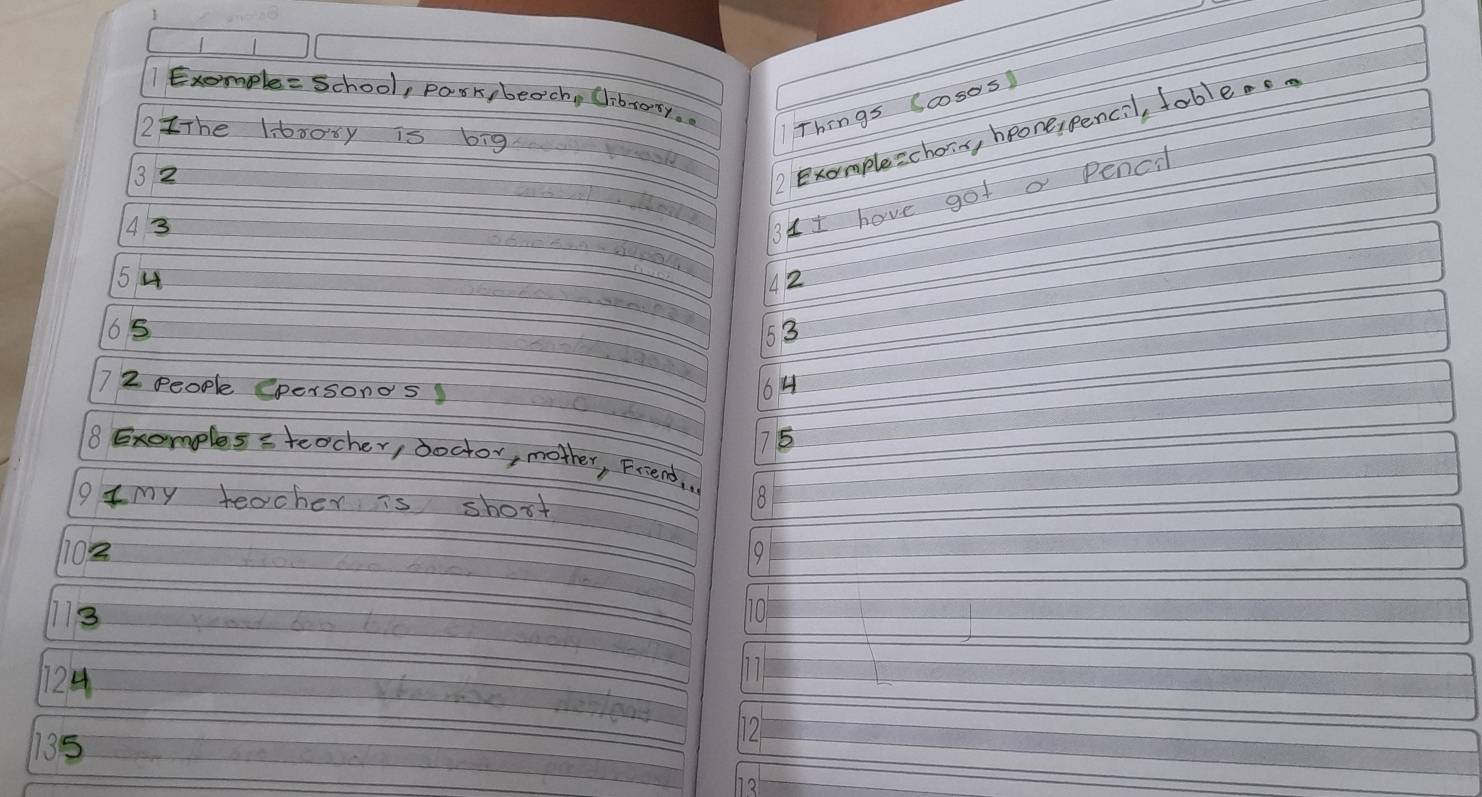 1 Example= School, Park, beach, (library...
2 1 The library is big
3 2
4 3
5 4
6 5
7 2 people (personas)
8 Examples= teacher, doctor, mother, Friend...
9 1 my teacher is short
10 2
11 3
12 4
13 5
1 Things (cosas)
2 Example=chair, hpone, pencil, table...
3 1 I have got a pencil
4 2
5 3
6 4
7 5
8
9
10
11
12
13